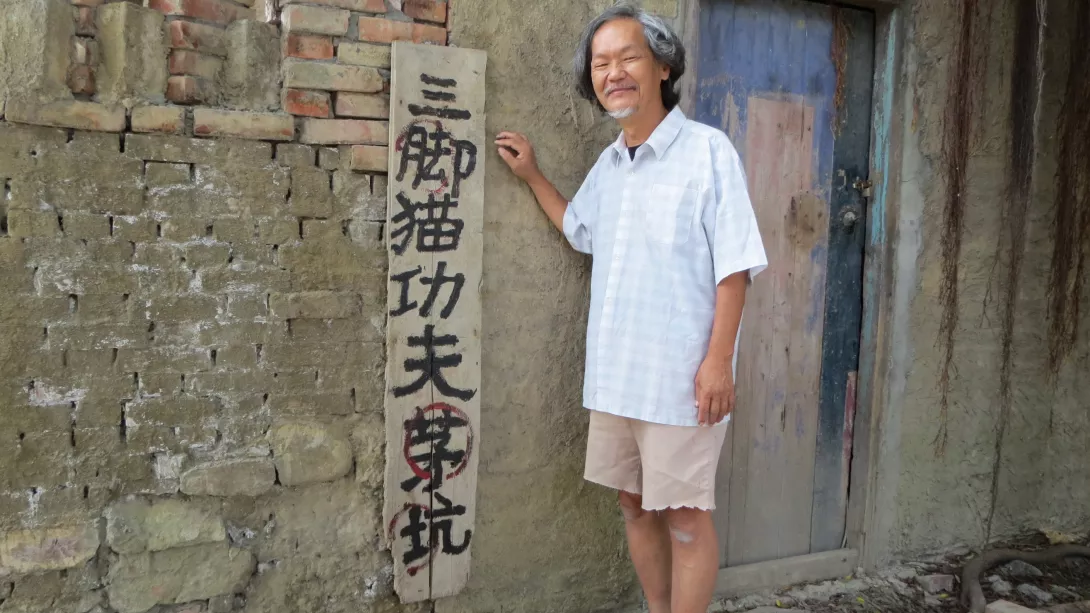 三脚猫功夫茅坑